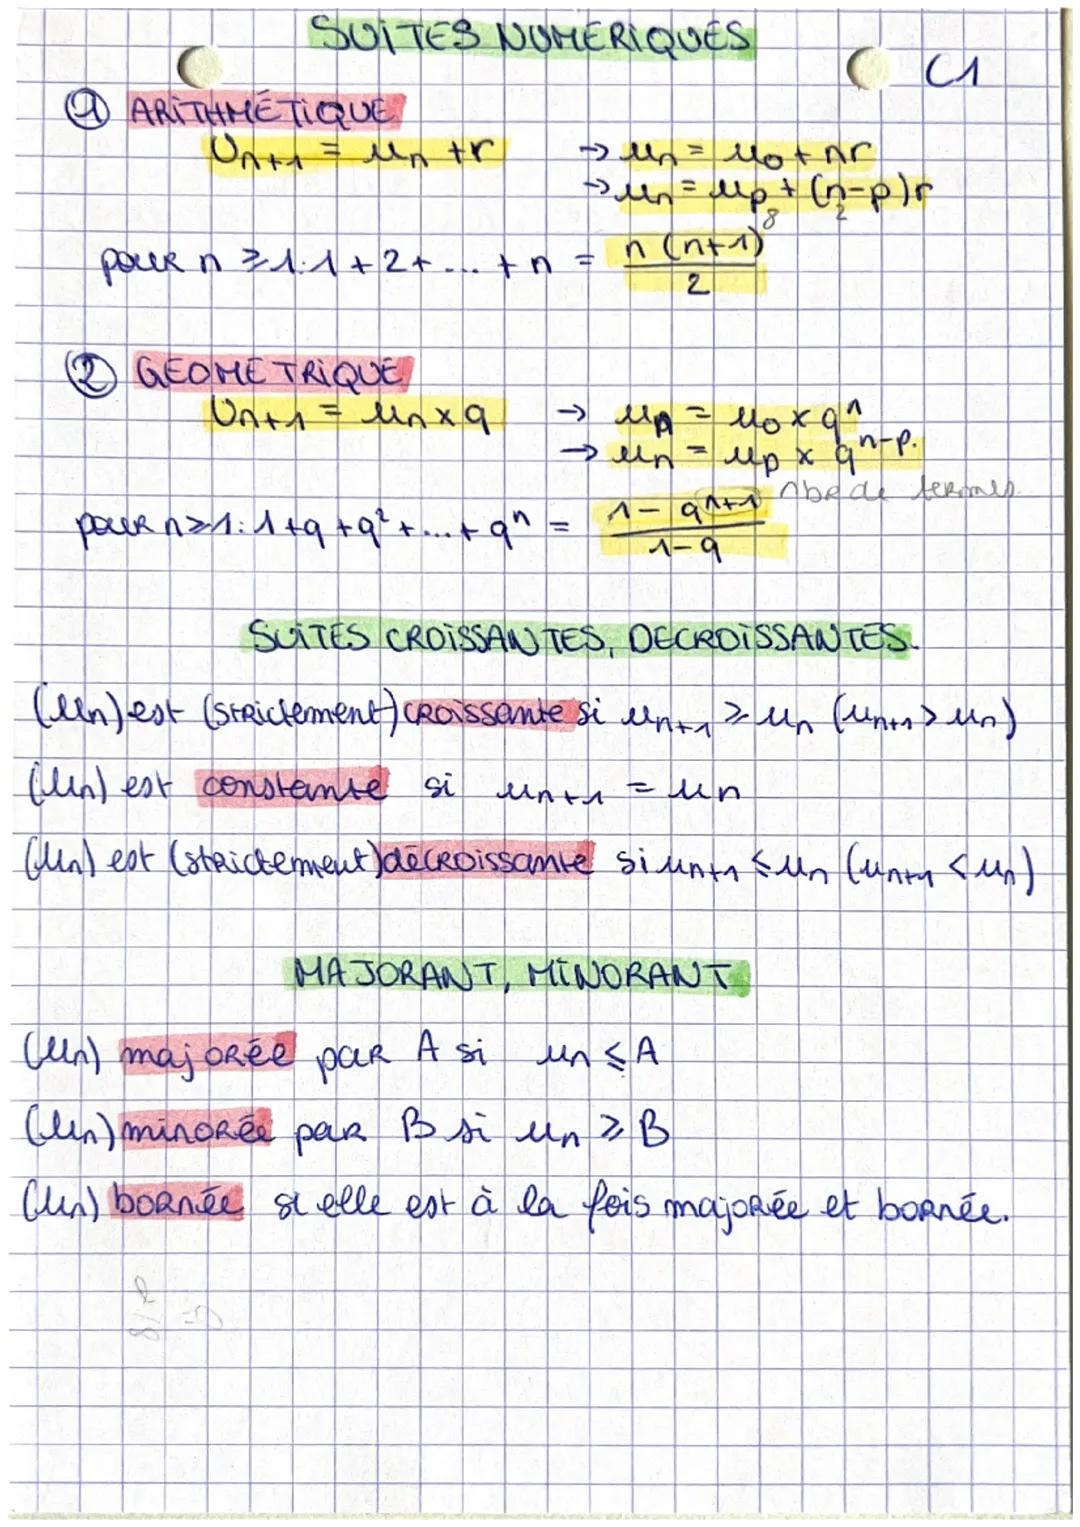 SUITES NUMÉRIQUES
C1
① ARITHMÉTIQUE
Un+1 = un + r → un = u0 + nr
→ un = up + (n-p)r
8 2
pour n ≥ 1: 1 + 2 + ... + n = n (n+1) / 2
② GÉOMÉTRIQUE
Un+1 = un x q → un = u0 x q^n
→ un = up x q^n-p.
nbre de termes
pour n ≥ 1: 1 + q + q² + ... + q^n = 1 - q^n+1 / 1 - q
SUITES CROISSANTES, DECROISSANTES.
(un) est (strictement) croissante si un+1 ≥ un (un+1 > un)
(un) est constante si un+1 = un
(un) est (strictement) décroissante si un+1 ≤ un (un+1 < un)
MAJORANT, MINORANT
(un) majorée par A si un ≤ A
(un) minorée par B si un ≥ B
(un) bornée si elle est à la fois majorée et bornée.